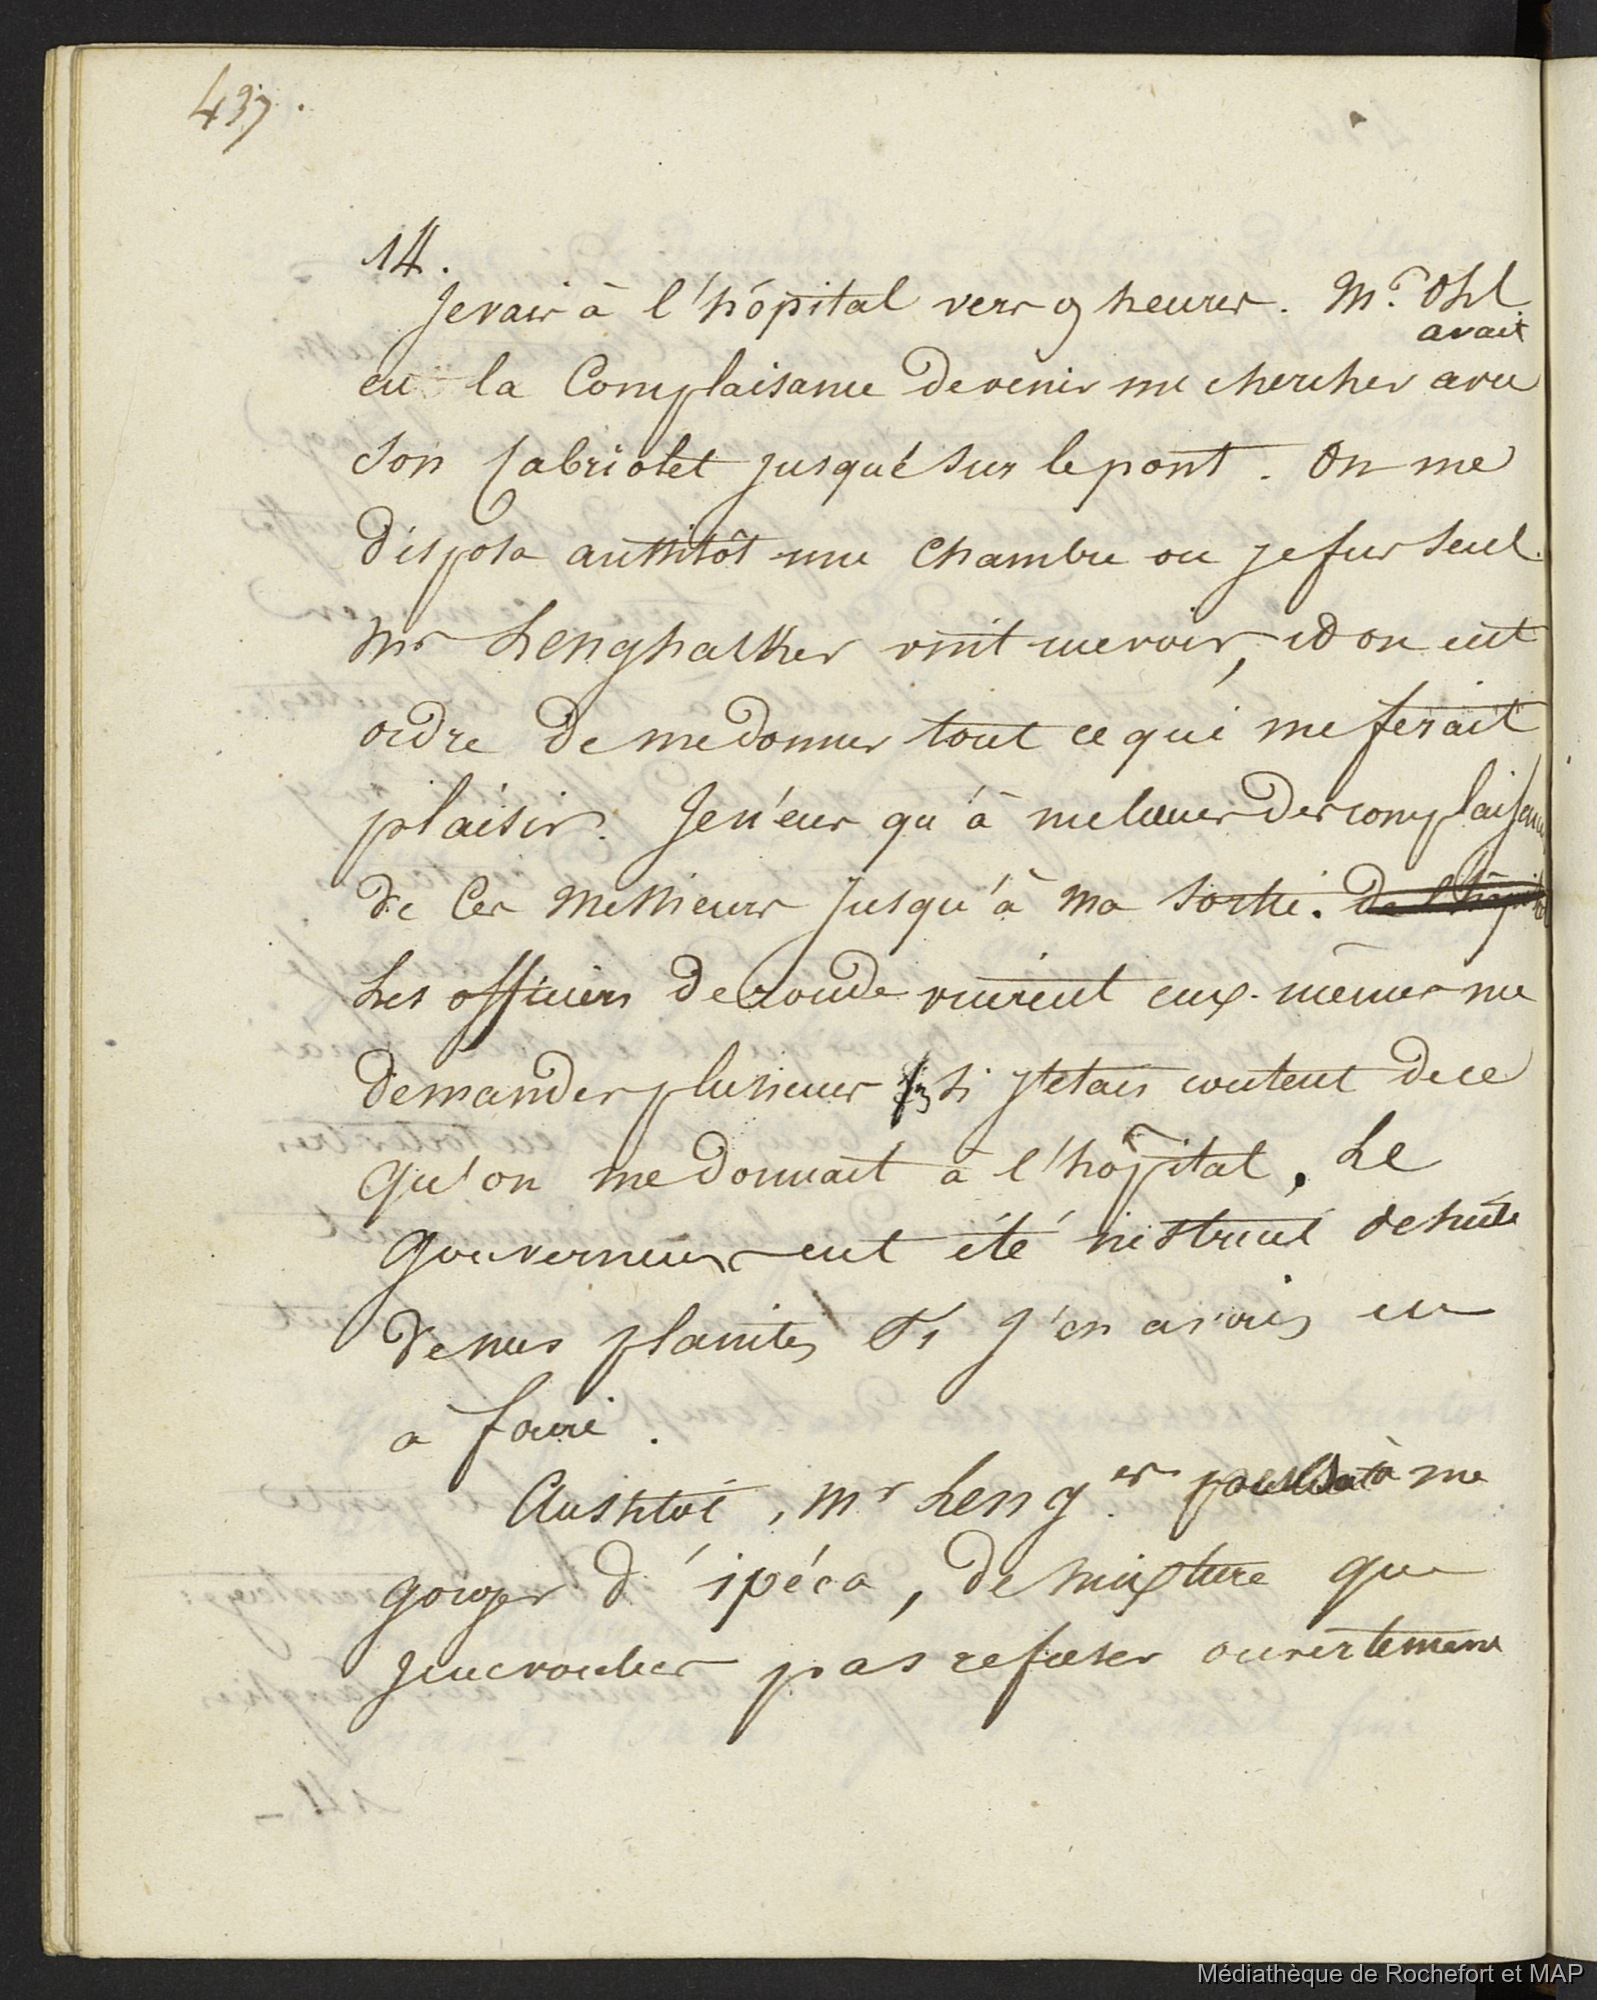 437.
14.
Je vais à l'hôpital vers 9 heures. Mr. Ohl
avait
eu la Complaisance de venir me chercher avec
son Cabriolet jusque sur le pont. On me
disposa aussitôt une chambre ou je fus seul.
Mr Lenghalker vint me voir, et on eut
ordre de me donner tout ce qui me ferait
plaisir. Je n'eus qu'à me louer des complaisances
de Ces Messieurs jusqu'à ma sortie. de l'hôpital
Les officiers de ronde vinrent eux-mêmes me
demander plusieurs fs si j'etais content de ce
qu'on me donnait à l'hôpital. Le
Gouverneur eut été instruit de suite
de mes plaintes si j'en avais eu
à faire.
Aussitot, Mr Leng.er pensa à me
gorger d'ipéca, de mixture que
je ne voulus pas refuser ouvertement
Médiathèque de Rochefort et MAP